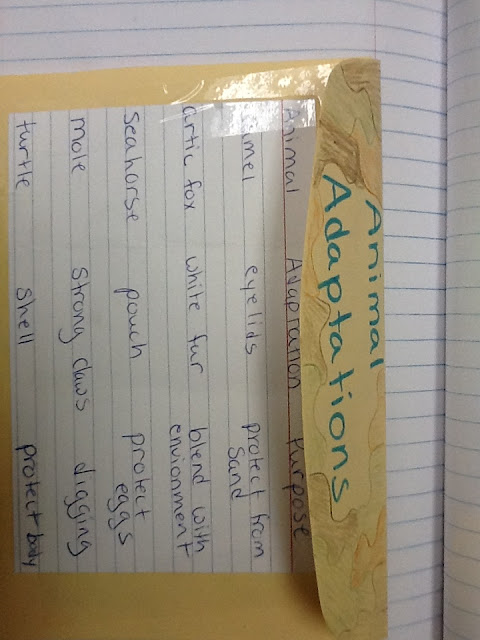 Animal
Adaptations
Animal Adaptation Purpose
camel eyelids protect from
sand
artic fox white fur blend with
envionment
seahorse pouch protect
eggs
mole strong claws digging
turtle shell protect body